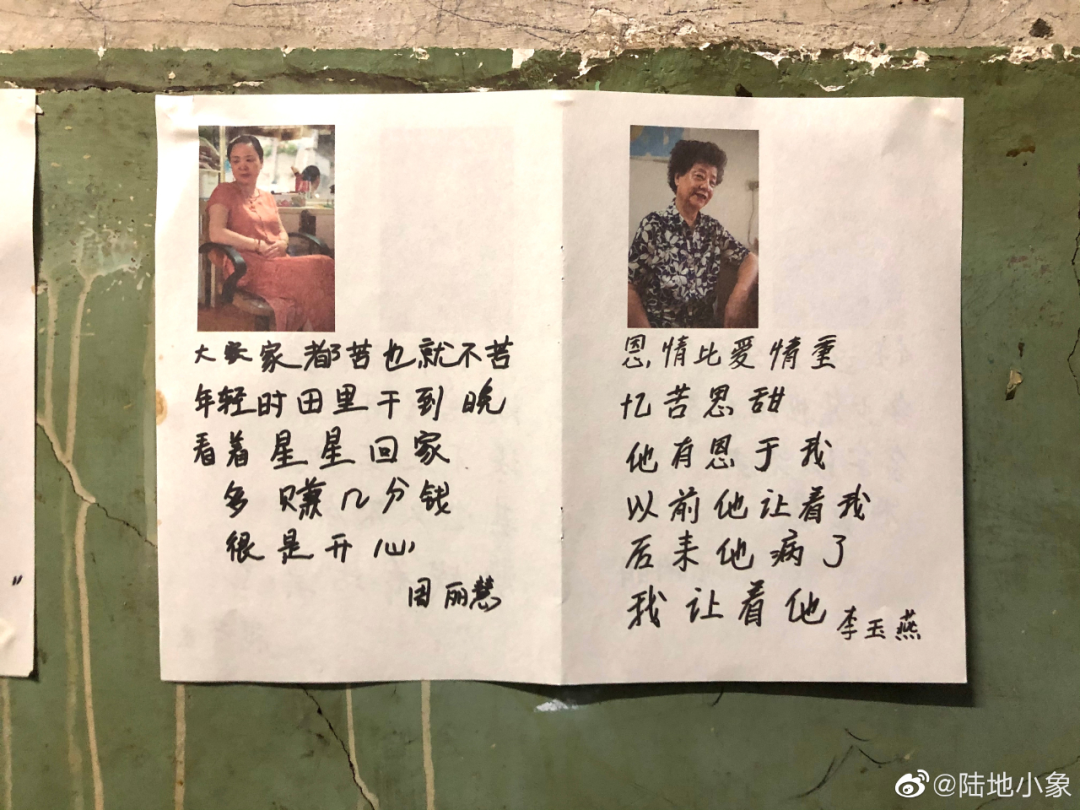 大家家都苦也就不苦
年轻时田里干到晚
看着星星回家
多赚几分钱
很是开心
周丽慧
恩情比爱情重
忆苦思甜
他有恩于我
以前他让着我
后来他病了
我让着他
李玉燕
”
@陆地小象